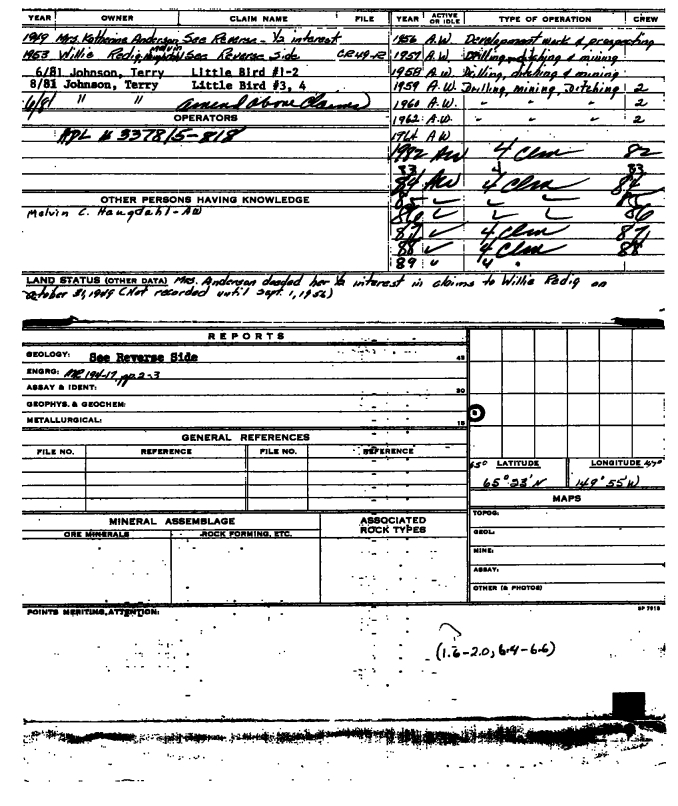 YEAR OWNER CLAIM NAME FILE YEAR ACTIVE OR IDLE TYPE OF OPERATION CREW
1949 Mrs. Katherine Anderson, See Reverse - 1/2 interest 1956 A.W. Development work & prospecting
1953 Willie Redig, Melvin See Reverse Side 1957 A.W. Drilling, ditching & mining
6/81 Johnson, Terry Little Bird #1-2 1958 A.W. Drilling, ditching & mining
8/81 Johnson, Terry Little Bird #3, 4 1959 A.W. Drilling, mining, Ditching 2
6/81 " " Amend Above Claims) 1960 A.W. " " 2
OPERATORS 1962 A.W. " " 2
ADL # 337815-818 1964 A W
1982 AW 4 Clm 82
83 4 83
84 AW 4 Clm 84
OTHER PERSONS HAVING KNOWLEDGE 85 ✓ ✓ ✓ 85
Melvin C. Haugdahl - AW 86 ✓ ✓ ✓ 86
87 ✓ 4 Clm 87
88 ✓ 4 Clm 88
89 " 4 "
LAND STATUS (OTHER DATA) Mrs. Anderson deeded her 1/2 interest in claims to Willie Redig on
October 31, 1949 (Not recorded until Sept. 1, 1956)
REPORTS
GEOLOGY: See Reverse Side 45
ENGRG: MR 194-17, pp. 2-3
ASSAY & IDENT: 30
GEOPHYS. & GEOCHEM:
METALLURGICAL: 15
GENERAL REFERENCES
FILE NO. REFERENCE FILE NO. REFERENCE
65° LATITUDE LONGITUDE 147°
65° 33' N 149° 55' W)
MAPS
MINERAL ASSEMBLAGE ASSOCIATED ROCK TYPES
ORE MINERALS ROCK FORMING, ETC.
TOPOG:
GEOL:
MINE:
ASSAY:
OTHER (& PHOTOS)
POINTS MERITING ATTENTION: SP 7815
(1.6-2.0, 6.4-6.6)